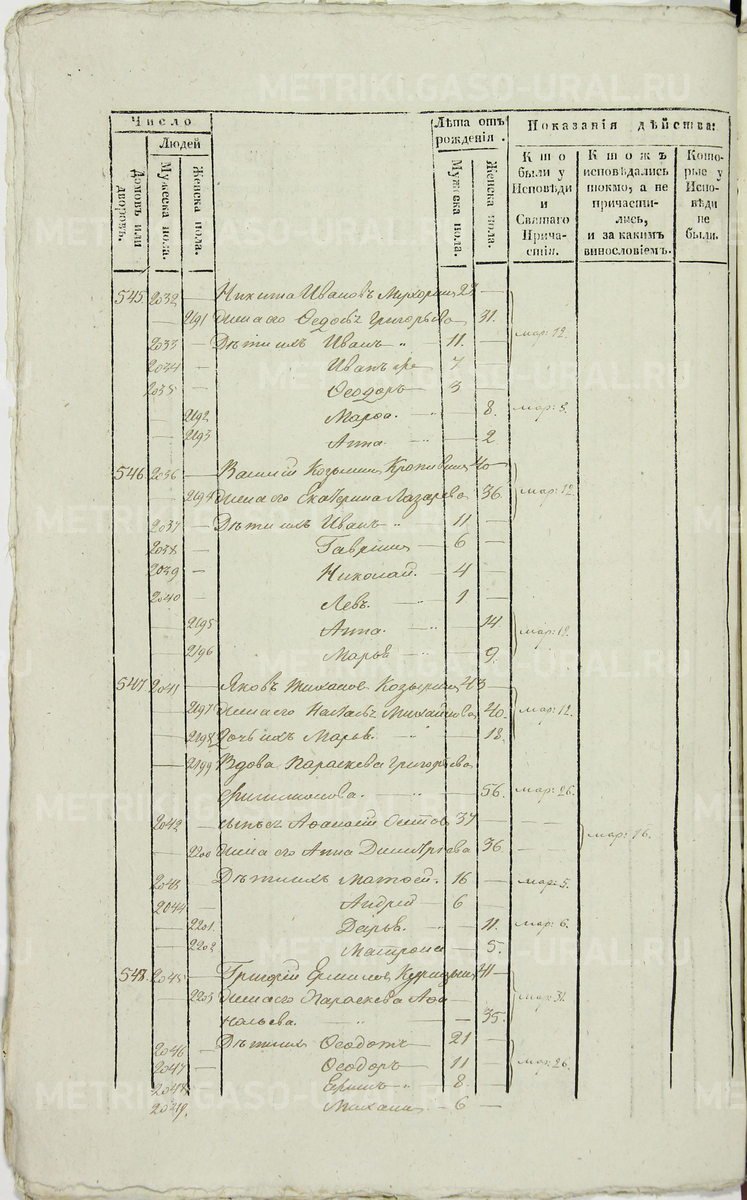 METRIKI.GASO-URAL.RU
Число
Людей
Домовъ или дворовъ.
Мужеска пола.
Женска пола.
Лѣта отъ рожденія.
Мужеска пола.
Женска пола.
Показанія дѣйства:
Кто были у Исповѣди и Святаго Причастія.
Ктожъ исповѣдались токмо, а не причастились, и за какимъ винословіемъ.
Которые у Исповѣди не были.
545 2032 — Никита Ивановъ —
— 2191 жена его Ѳедосья Григорьева 31. мар: 12.
2033 — Дѣти ихъ Иванъ — 11. —
2034 — Иванъ же 7 —
2035 — Ѳеодоръ — 3 —
— 2192 Марѳа. — 8. мар: 5.
— 2193 Анна. — 2
546 2036 — Василій Козьминъ 40 —
— 2194 жена его Екатерина Лазарева 36. мар: 12.
2037 — Дѣти ихъ Иванъ 11 —
2038 — Гавріилъ — 6 —
2039 — Николай — 4 —
2040 — Левъ. — 1 —
— 2195 Анна. — 14.
— 2196 Марья — 9.
547 2041 — Яковъ Козьминъ 43 —
— 2197 жена его Наталья Михайлова 40. мар: 12.
— 2198 Дочь ихъ Марья. 18.
— 2199 Вдова Параскева Григорьева
56. мар: 26.
2042 — сынъ ея Аѳанасій 37 — мар: 16.
— 2200 жена его Анна Димитріева 36
2043 — Дѣти ихъ Матѳей. 16 — мар: 5.
2044 — Андрей — 6 —
— 2201. Дарья. — 11. мар: 6.
— 2202 Матрона — 5.
548. 2045 — Григорій Ермиловъ 41 —
— 2203 жена его Параскева Аѳа
насьева. — 35. мар: 31.
2046 — Дѣти ихъ Ѳеодотъ — 21 —
2047 — Ѳеодоръ — 11 — мар: 26.
2048 — Ермилъ — 8. —
2049. Михаилъ — 6 —